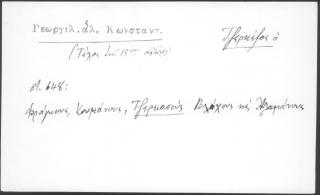 Γεωργιλ. ἁλ. Κωνσταντ.
(Τέλος τοῦ 15ου αἰῶνος)
Τζερκέζος ὁ
στ. 648:
Φράγκους, Κουμάνους, Τζερκασούς Βλάχους κὲ Ἀλαμάνους